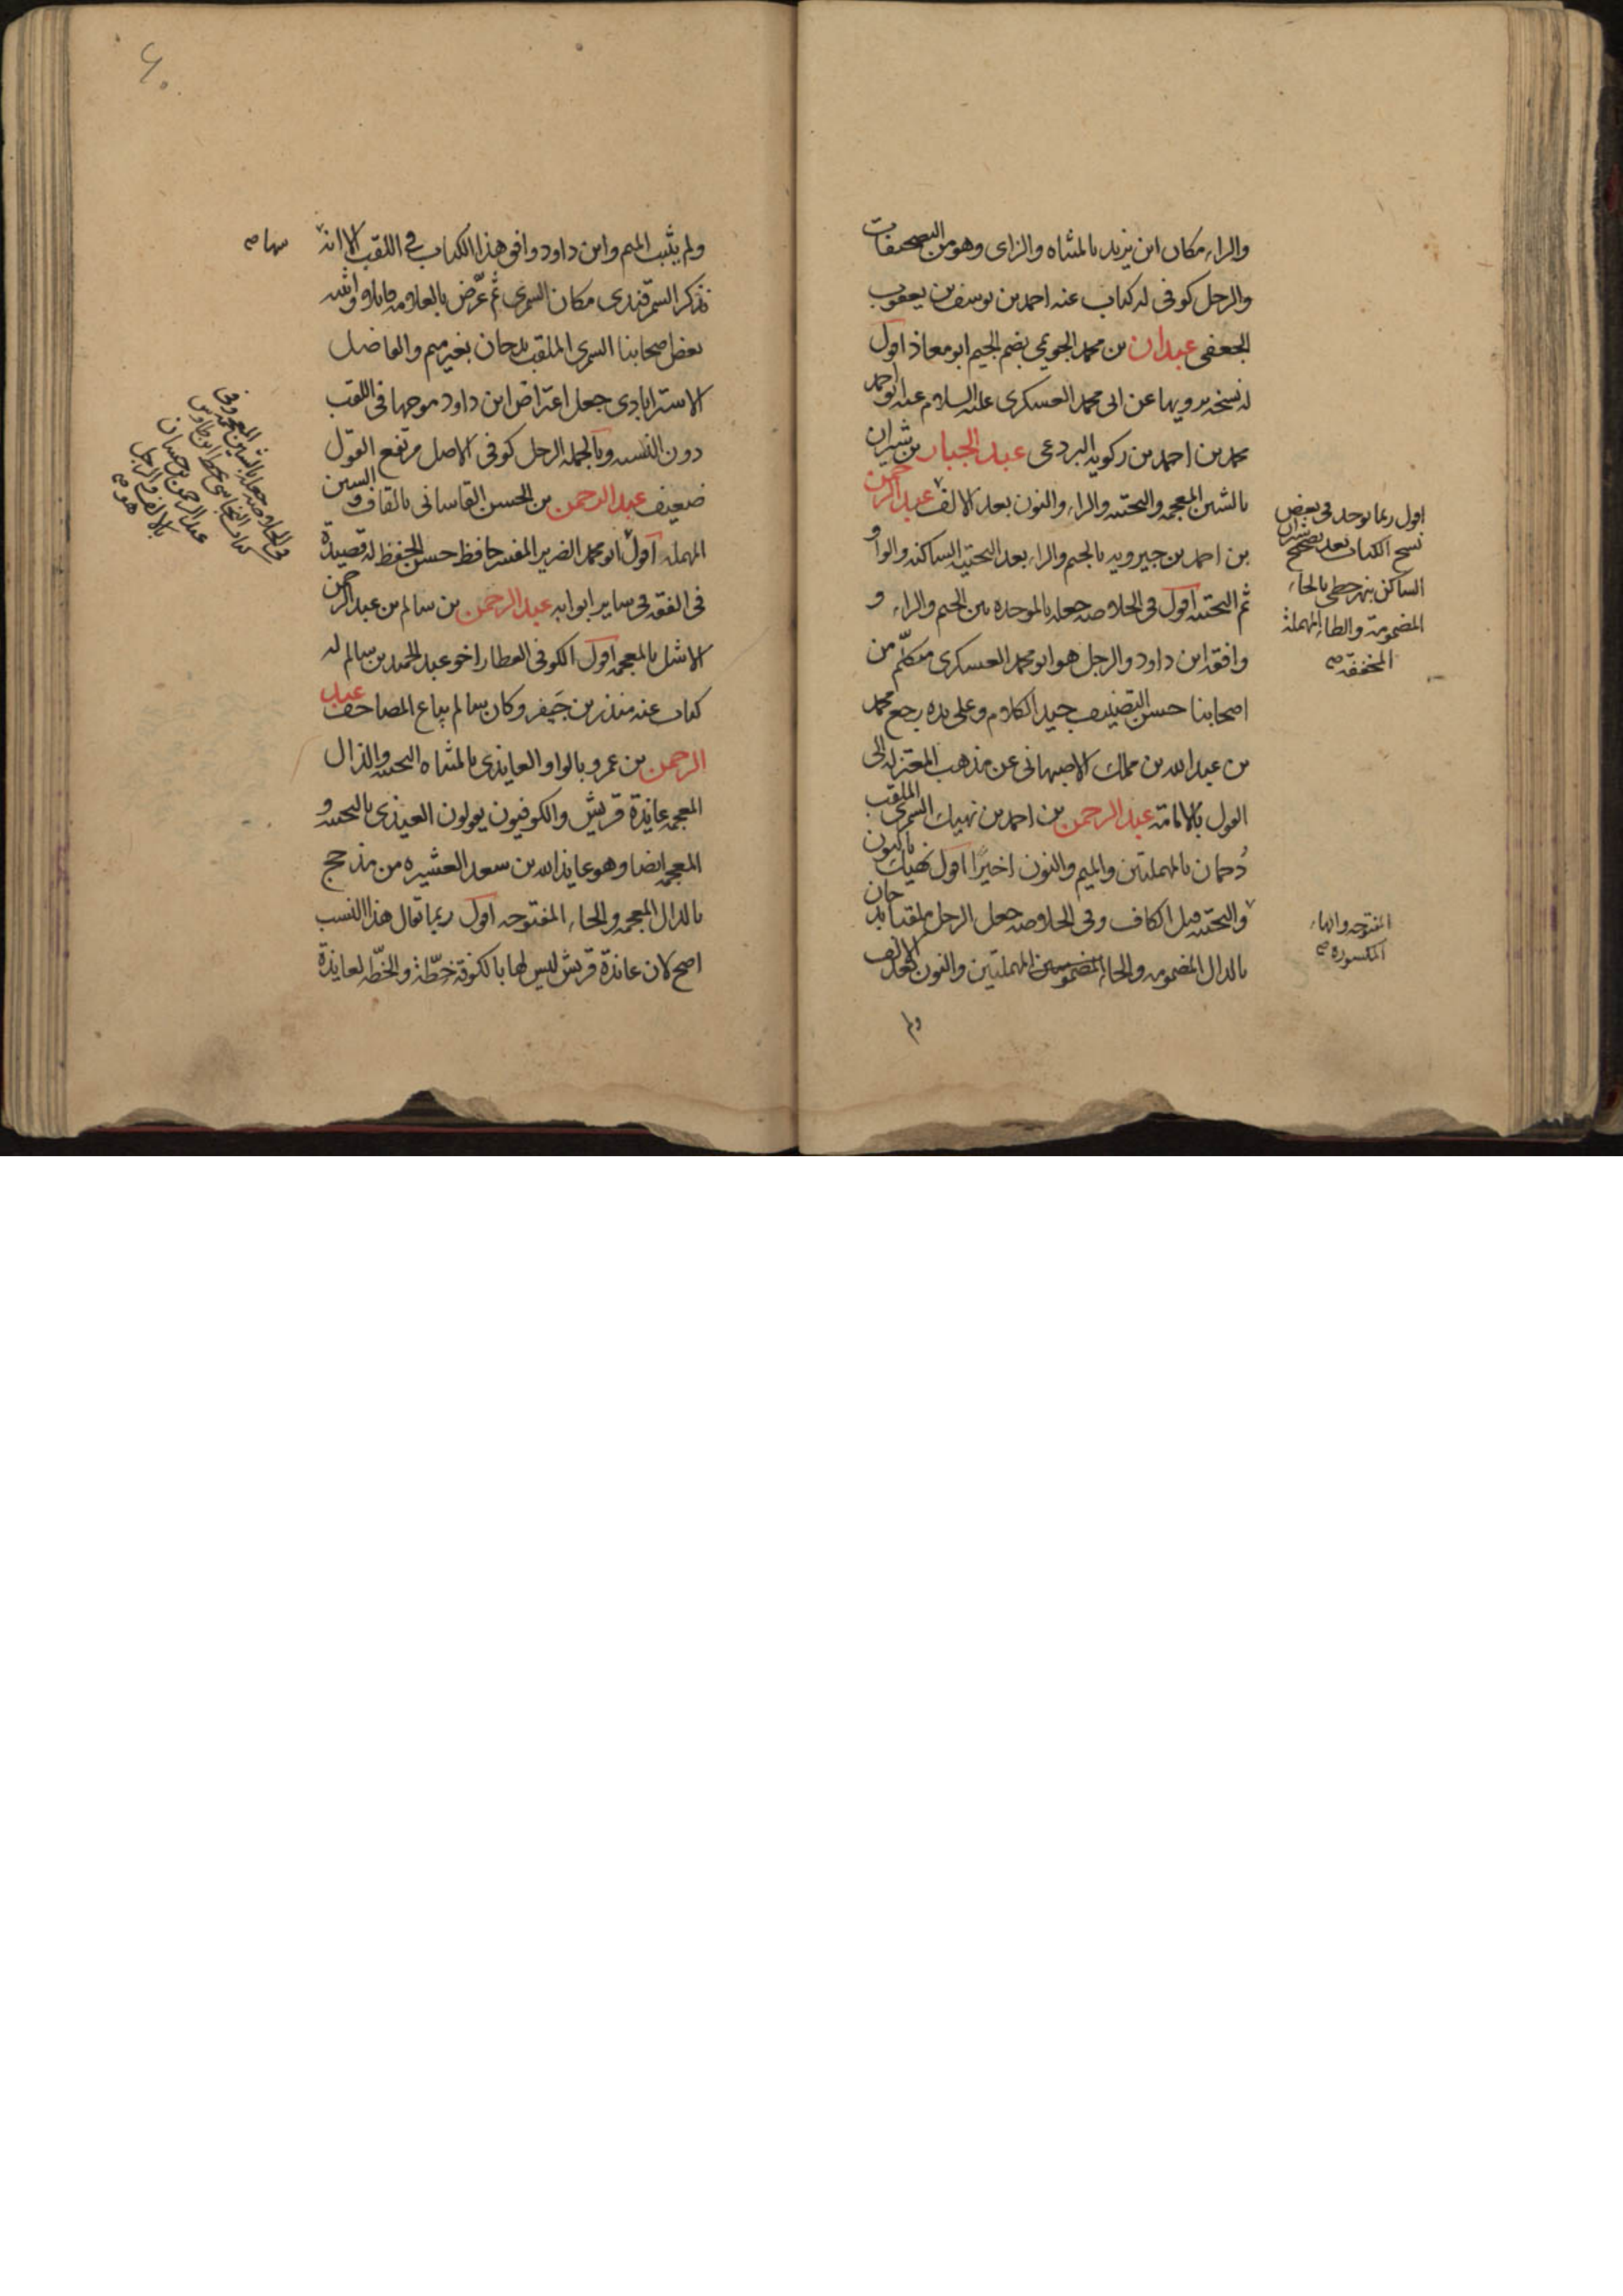 والراء مكان ابن يزيد بالمثناه والزاى وهو من التصحيفات
والرجل كوفى له كتاب عنه احمد بن يوسف بن يعقوب
الجعفى عبدان بن محمد الجويمى بضم الجيم ابو معاذ اول
له نسخه يرويها عن ابى محمد العسكرى عليه السلام عنه ابو احمد
محمد بن احمد بن زكويه البردعى عبد الجبار بن شيران
بالشين المعجمه والتحتيه والراء والنون بعد الالف عبد الرحمن
بن احمد بن جيرويه بالجيم والراء بعد التحتيه الساكنه والواو
ثم التحتيه اقول فى الخلاصه جعله بالموحده بين الجيم والراء و
وافقه ابن داود والرجل هو ابو محمد العسكرى متكلّم من
اصحابنا حسن التصنيف جيد الكلام وعلى يده رجع محمد
بن عبد الله بن مملك الاصبهانى عن مذهب المعتزله الى
القول بالامامة عبد الرحمن بن احمد بن نهيك السمرى الملقب
دُحمان بالمهملتين والميم والنون اخيرًا اقول نهيك بالنون
والتحتيه قبل الكاف وفى الخلاصه جعل الرجل ملقبا بدحان
بالدال المضمومه والحاء المضمومتين المهملتين والنون بعد الالف
ولم
اقول ربما يوجد فى بعض
نسخ الكتاب بعد تصحيح شيران
الساكن بنهر حطى بالحاء
المضمومة والطاء المهملة
المخففه صح
المفتوحه والهاء
المكسوره صح
ولم يثبت الميم وابن داود وافق هذا الكتاب فى اللقب الا انه
نذكر السمرقندى مكان السمرى ثم عرّض بالعلامه قايلا واثبته
بعض اصحابنا السمرى الملقب بدحان بغير ميم والفاضل
الاسترابادى جعل اعتراض ابن داود موجها فى اللقب
دون النسبه وبالجمله الرجل كوفى الاصل مرتفع القول
ضعيف عبد الرحمن بن الحسن القاسانى بالقاف والسين
المهمله اقول ابو محمد الضرير المفسر حافظ حسن الحفظ له قصيدة
فى الفقه فى ساير ابوابه عبد الرحمن بن سالم بن عبد الرحمن
الاشل بالمعجمه اقول الكوفى العطار اخو عبد الحميد بن سالم له
كتاب عنه منذر بن جَيفر وكان سالم بياع المصاحف عبد
الرحمن بن عمرو بالواو العايذى بالمثناه التحتيه والذال
المعجمه عايذة قريش والكوفيون يقولون العيذى بالتحتيه و
المعجمه ايضا وهو عايذ الله بن سعد العشيره من مذحج
بالذال المعجمه والحاء المفتوحه اقول ربما تقال هذا النسب
اصح لان عائذة قريش ليس لها بالكوفة خطّة والخطّه لعايذة
سها صح
وفى الخلاصه جعله بالشين المعجمه وفى
كتاب النجاشى بخط ابن طاوس
عبد الرحمن بن حسان
بالالف والرجل
هو صح
٤٠